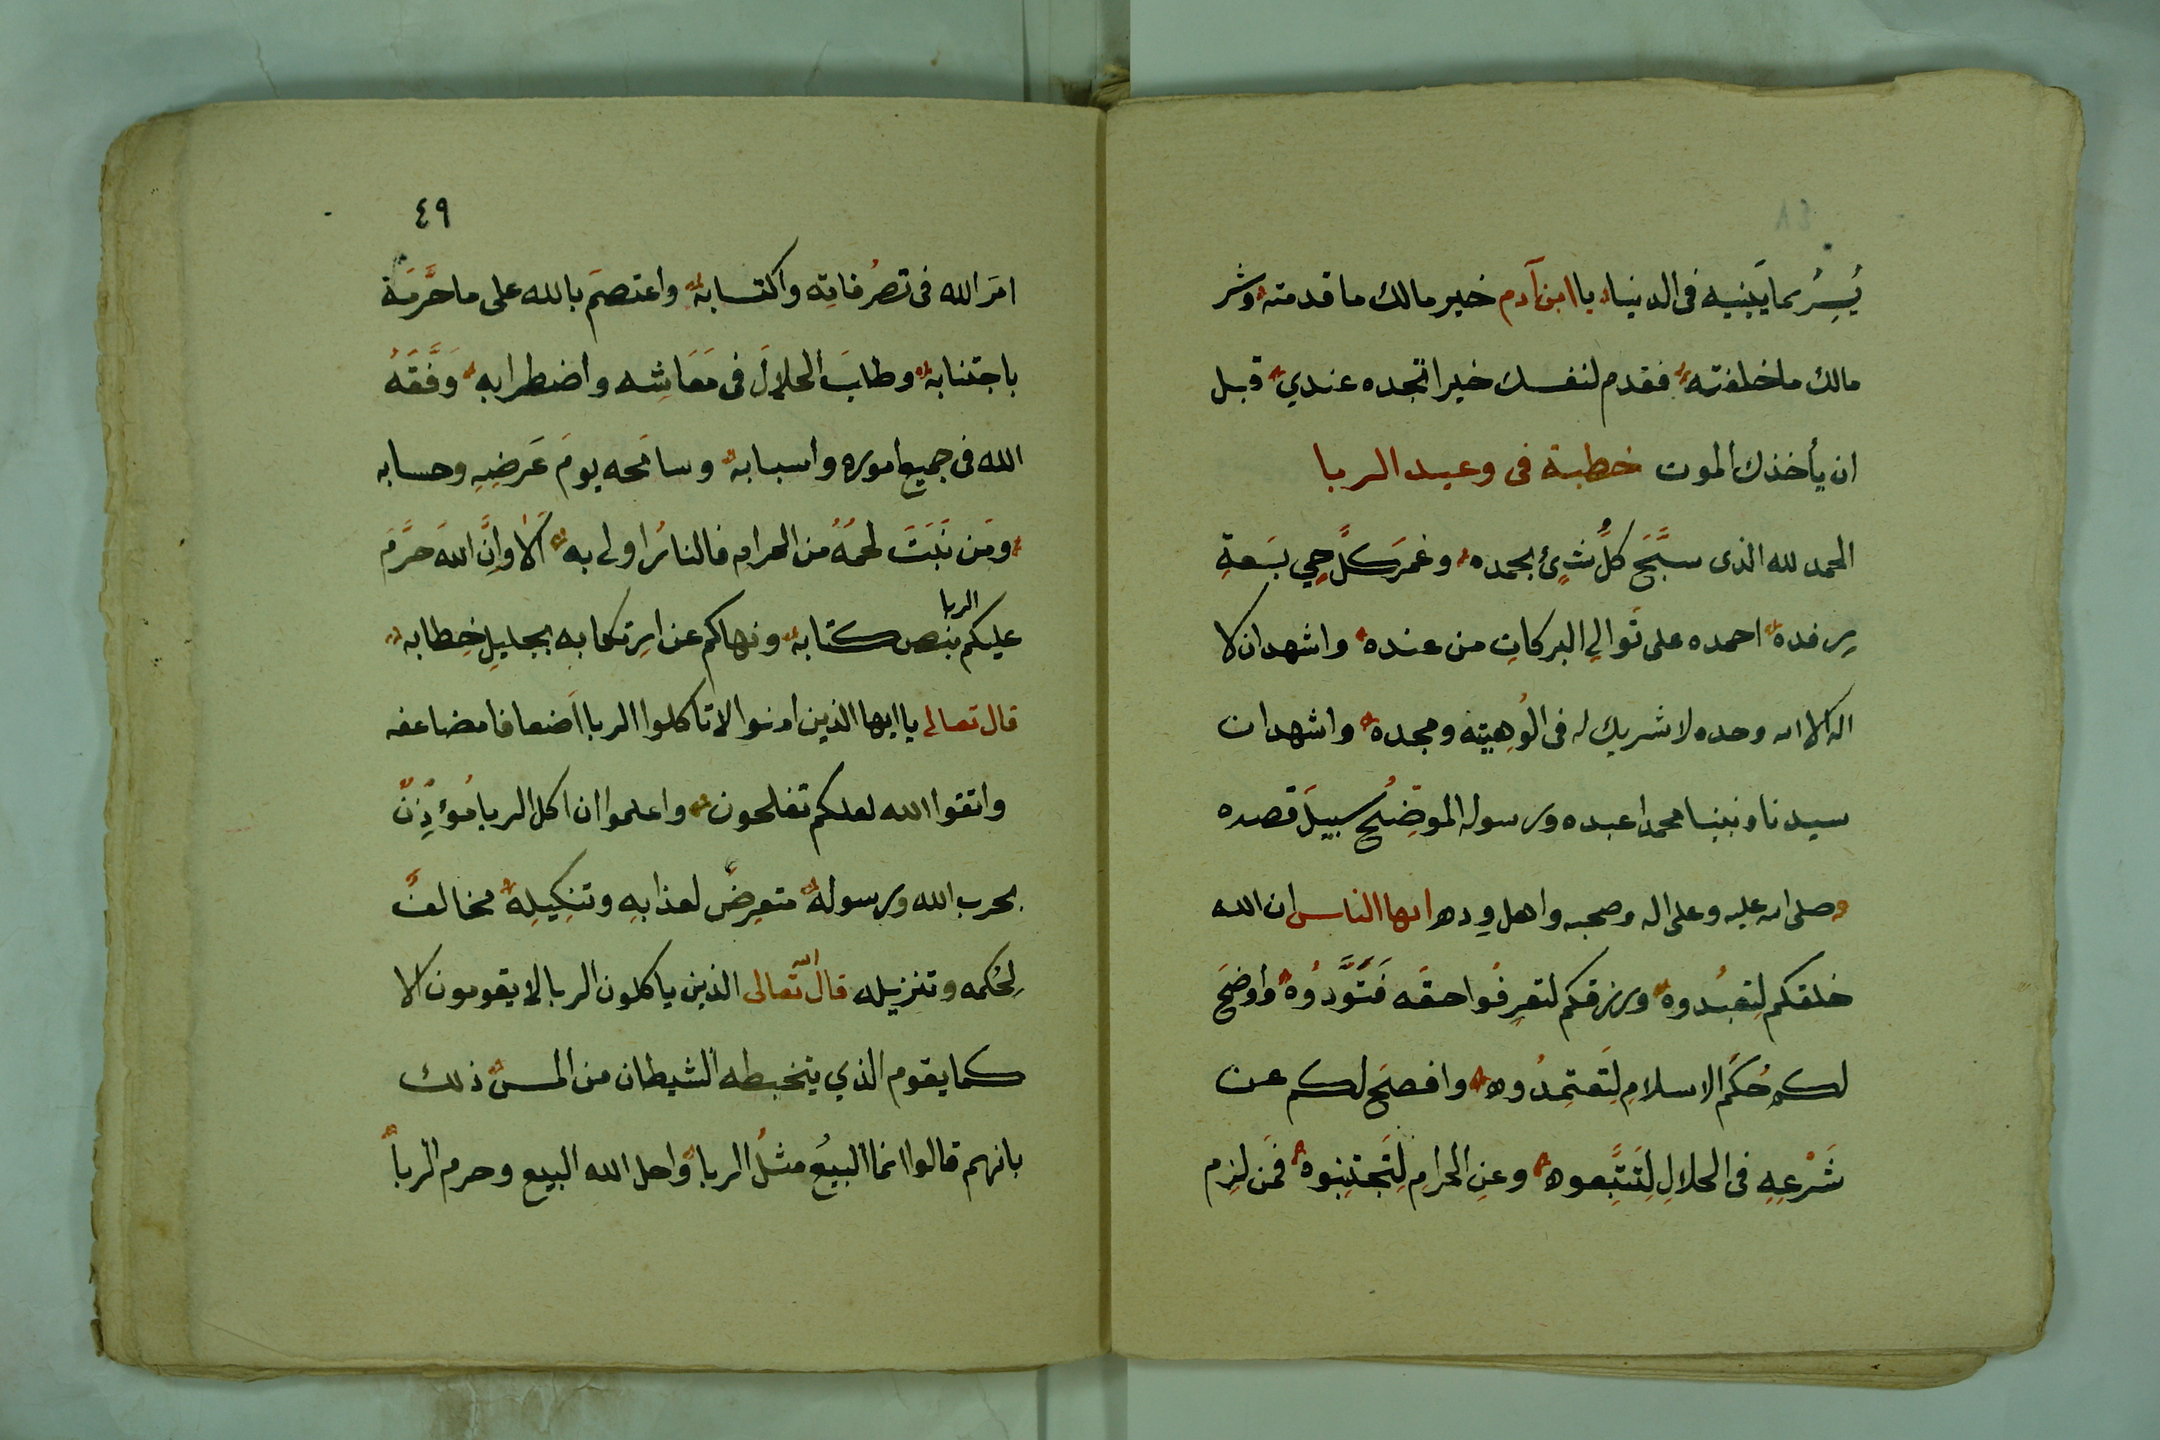 ٤٨
يُسِرُّ بما يَبنيه فى الدنيا يا ابن آدم خير مالك ما قدمته وشر
مالك ما خلفته فقدم لنفسك خيرا تجده عندي قبل
ان يأخذك الموت خطبة فى وعيد الربا
الحمد لله الذى سبَّحَ كلُّ شئٍ بحمده وغمرَ كلَّ حيٍ بسَعةِ
رِفده احمده على تَوالِي البركاتِ من عنده واشهد ان لا
اله الا الله وحده لا شريك له فى الُوهِيته ومجده واشهد ان
سيدنا ونبينا محمدا عبده ورسوله الموضِحُ سبيلَ قصده
وصلى الله عليه وعلى اله وصحبه واهل وِده ايها الناس ان الله
خلقكم لِتعبُدوه ورزقكم لتعرِفُوا حقَه فَتَوَّدُوهُ وأوضحَ
لكم حُكمَ الاسلامِ لِتَعتمِدُوه وافصحَ لكم عن
شَرْعِهِ فى الحلالِ لِتَتَّبِعوه وعنِ الحرامِ لِتَجتنِبوه فمَن لزِم
٤٩
امَر الله فى تصرُفاتِه واكتسابه واعتصمَ بالله على ما حَرَّمَهُ
باجتنابه وطابَ الحلالَ فى مَعَاشِه واضطرابه وَفَّقَهُ
الله فى جميع اموره واسبابه وسامَحه يومَ عَرضِهِ وحسابه
ومَن نَبَتَ لحمُهُ من الحرامِ فالنارُ اولى به اَلَا وانَّ اللهَ حرَّمَ
عليكم الربا بنص كتابه ونهاكم عن ارِتكابه بجليلِ خِطابه
قال تعالى يا ايها الذين امنوا لا تاكلوا الربا اَضعافا مضاعفه
واتقوا الله لعلكم تفلحون واعلموا ان اكل الربا مُؤذِنٌ
بحرب الله ورسوله متعرِضٌ لعذابهِ وتنكِيلِه مخالفٌ
لِحُكمه وتنزيله قال الله تعالى الذين ياكلون الربا لا يقومون الا
كما يقوم الذي يتخبطه الشيطان من المس ذلك
بانهم قالوا انما البيعُ مثلُ الربا واحل الله البيع وحرم الربا